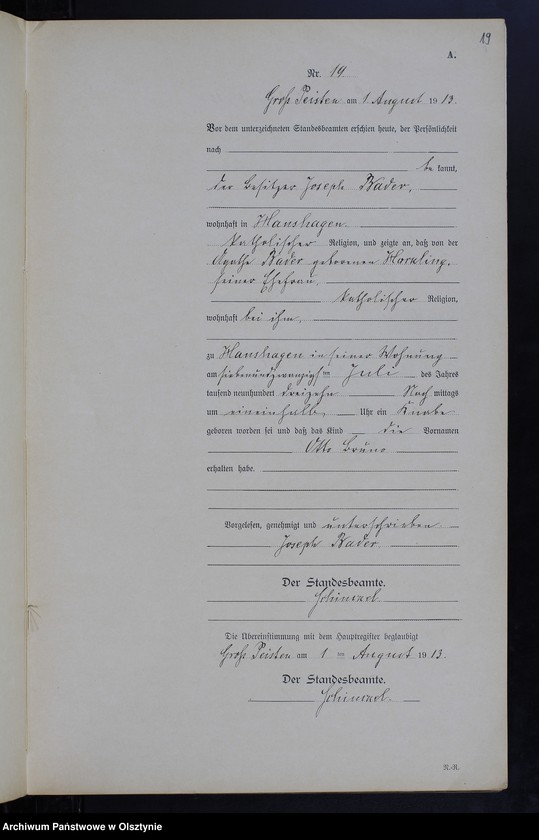 19
A.
Nr. 19
Groß Peisten am 1. August 1913.
Vor dem unterzeichneten Standesbeamten erschien heute, der Persönlichkeit
nach
bekannt,
der Besitzer Joseph Kader,
wohnhaft in Hanshagen
katholischer Religion, und zeigte an, daß von der
Agathe Kader geborenen
seiner Ehefrau,
katholischer Religion,
wohnhaft bei ihm,
zu Hanshagen in seiner Wohnung
am siebenundzwanzigsten Juli des Jahres
tausend neunhundert dreizehn Nachmittags
um eineinhalb Uhr ein Knabe
geboren worden sei und daß das Kind die Vornamen
Otto Bruno
erhalten habe.
Vorgelesen, genehmigt und unterschrieben
Joseph Kader
Der Standesbeamte.
Die Übereinstimmung mit dem Hauptregister beglaubigt
Groß Peisten am 1 ten August 1913.
Der Standesbeamte.
Archiwum Państwowe w Olsztynie